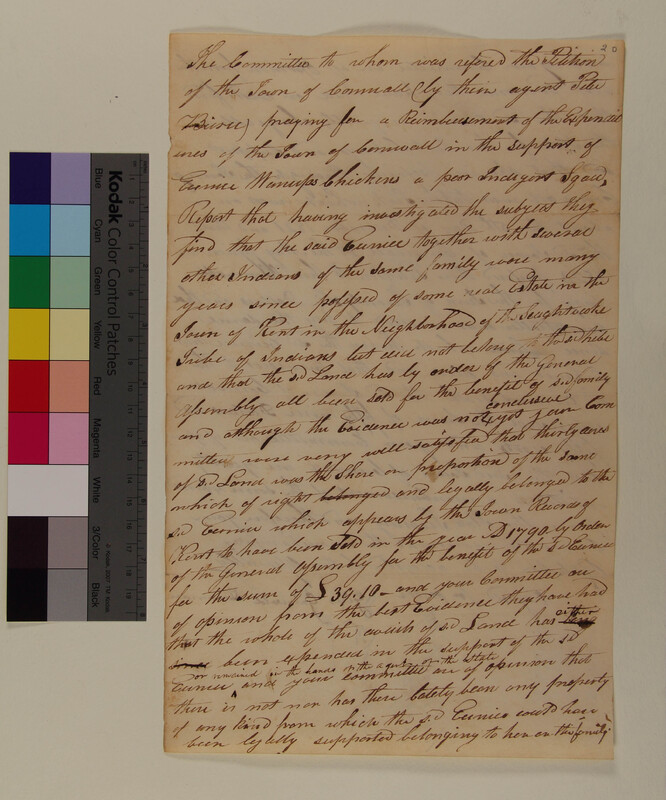 20
The Committee to whom was refered the Petition
of the Town of Cornwall (by their agent Peter
Bierce) praying for a Reimbursement of the Expendit
ures of the Town of Cornwall in the support of
Eunice Chickens a poor Indigent Squaw,
Report that having investigated the subject they
find that the said Eunice together with several
other Indians of the same family were many
years since possessed of some real Estate in the
Town of Kent in the Neighborhood of the
Tribe of Indians but did not belong to the sd tribe
and that the sd Land has by order of the General
Assembly all been sold for the benefit of sd family
and although the Evidence was not conclusive yet your Com
mittee were very well satisfied that thirty acres
of sd Land was the Share or proportion of the same
which of right belonged and legally belonged to the
sd Eunice which appears by the Town Records of
Kent to have been sold in the year AD 1790 by Order
of the General Assembly for the benefit of the sd Eunice
for the sum of £39.10- and your Committee are
of opinion from the best Evidence they have had
that the whole of the avails of sd Land has either
been expended in the support of the sd
or remained in the hands of the agent or the State
Eunice and your committee are of opinion that
there is not nor has there lately been any property
of any kind from which the sd Eunice could have
been legally supported belonging to her or the family
Kodak Color Control Patches
Blue
Cyan
Green
Yellow
Red
Magenta
White
3/Color
Black